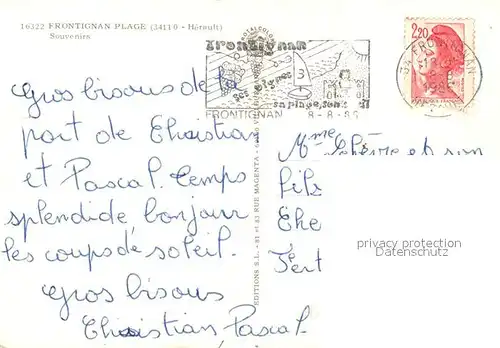 16322 FRONTIGNAN PLAGE (34110 - Hérault)
Souvenirs
frontignan
ses vignes
sa plage, son
FRONTIGNAN 8-8-86
2,20
FRONTIGNAN
Gros bisous de la
part de Christian
et Pascal. Temps
splendide bonjour
les coups de soleil.
Gros bisous
Christian Pascal
EDITIONS S.L. - 81 et 83 RUE MAGENTA
Mme Lelièvre et son
fils
Che
Fert
privacy protection
Datenschutz